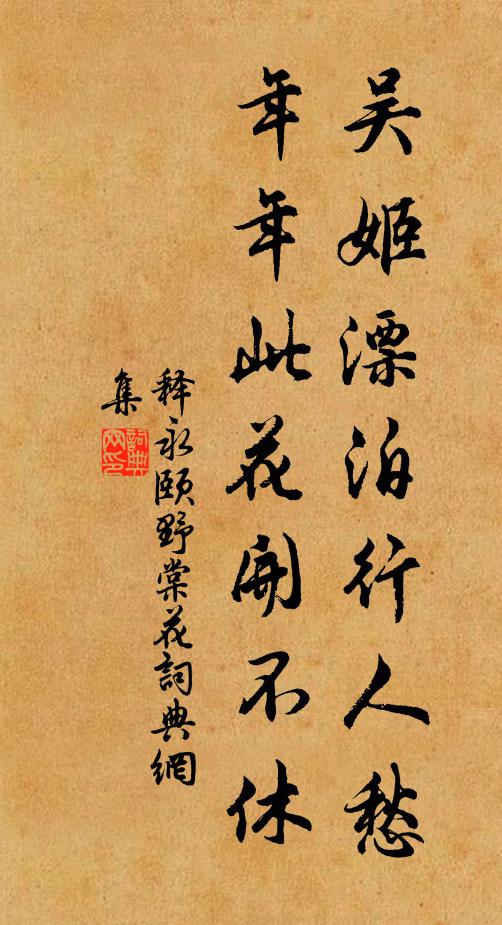 吴姬漂泊行人愁
年年此花開不休
释永頤野棠花詞典網
集
詞典
网印